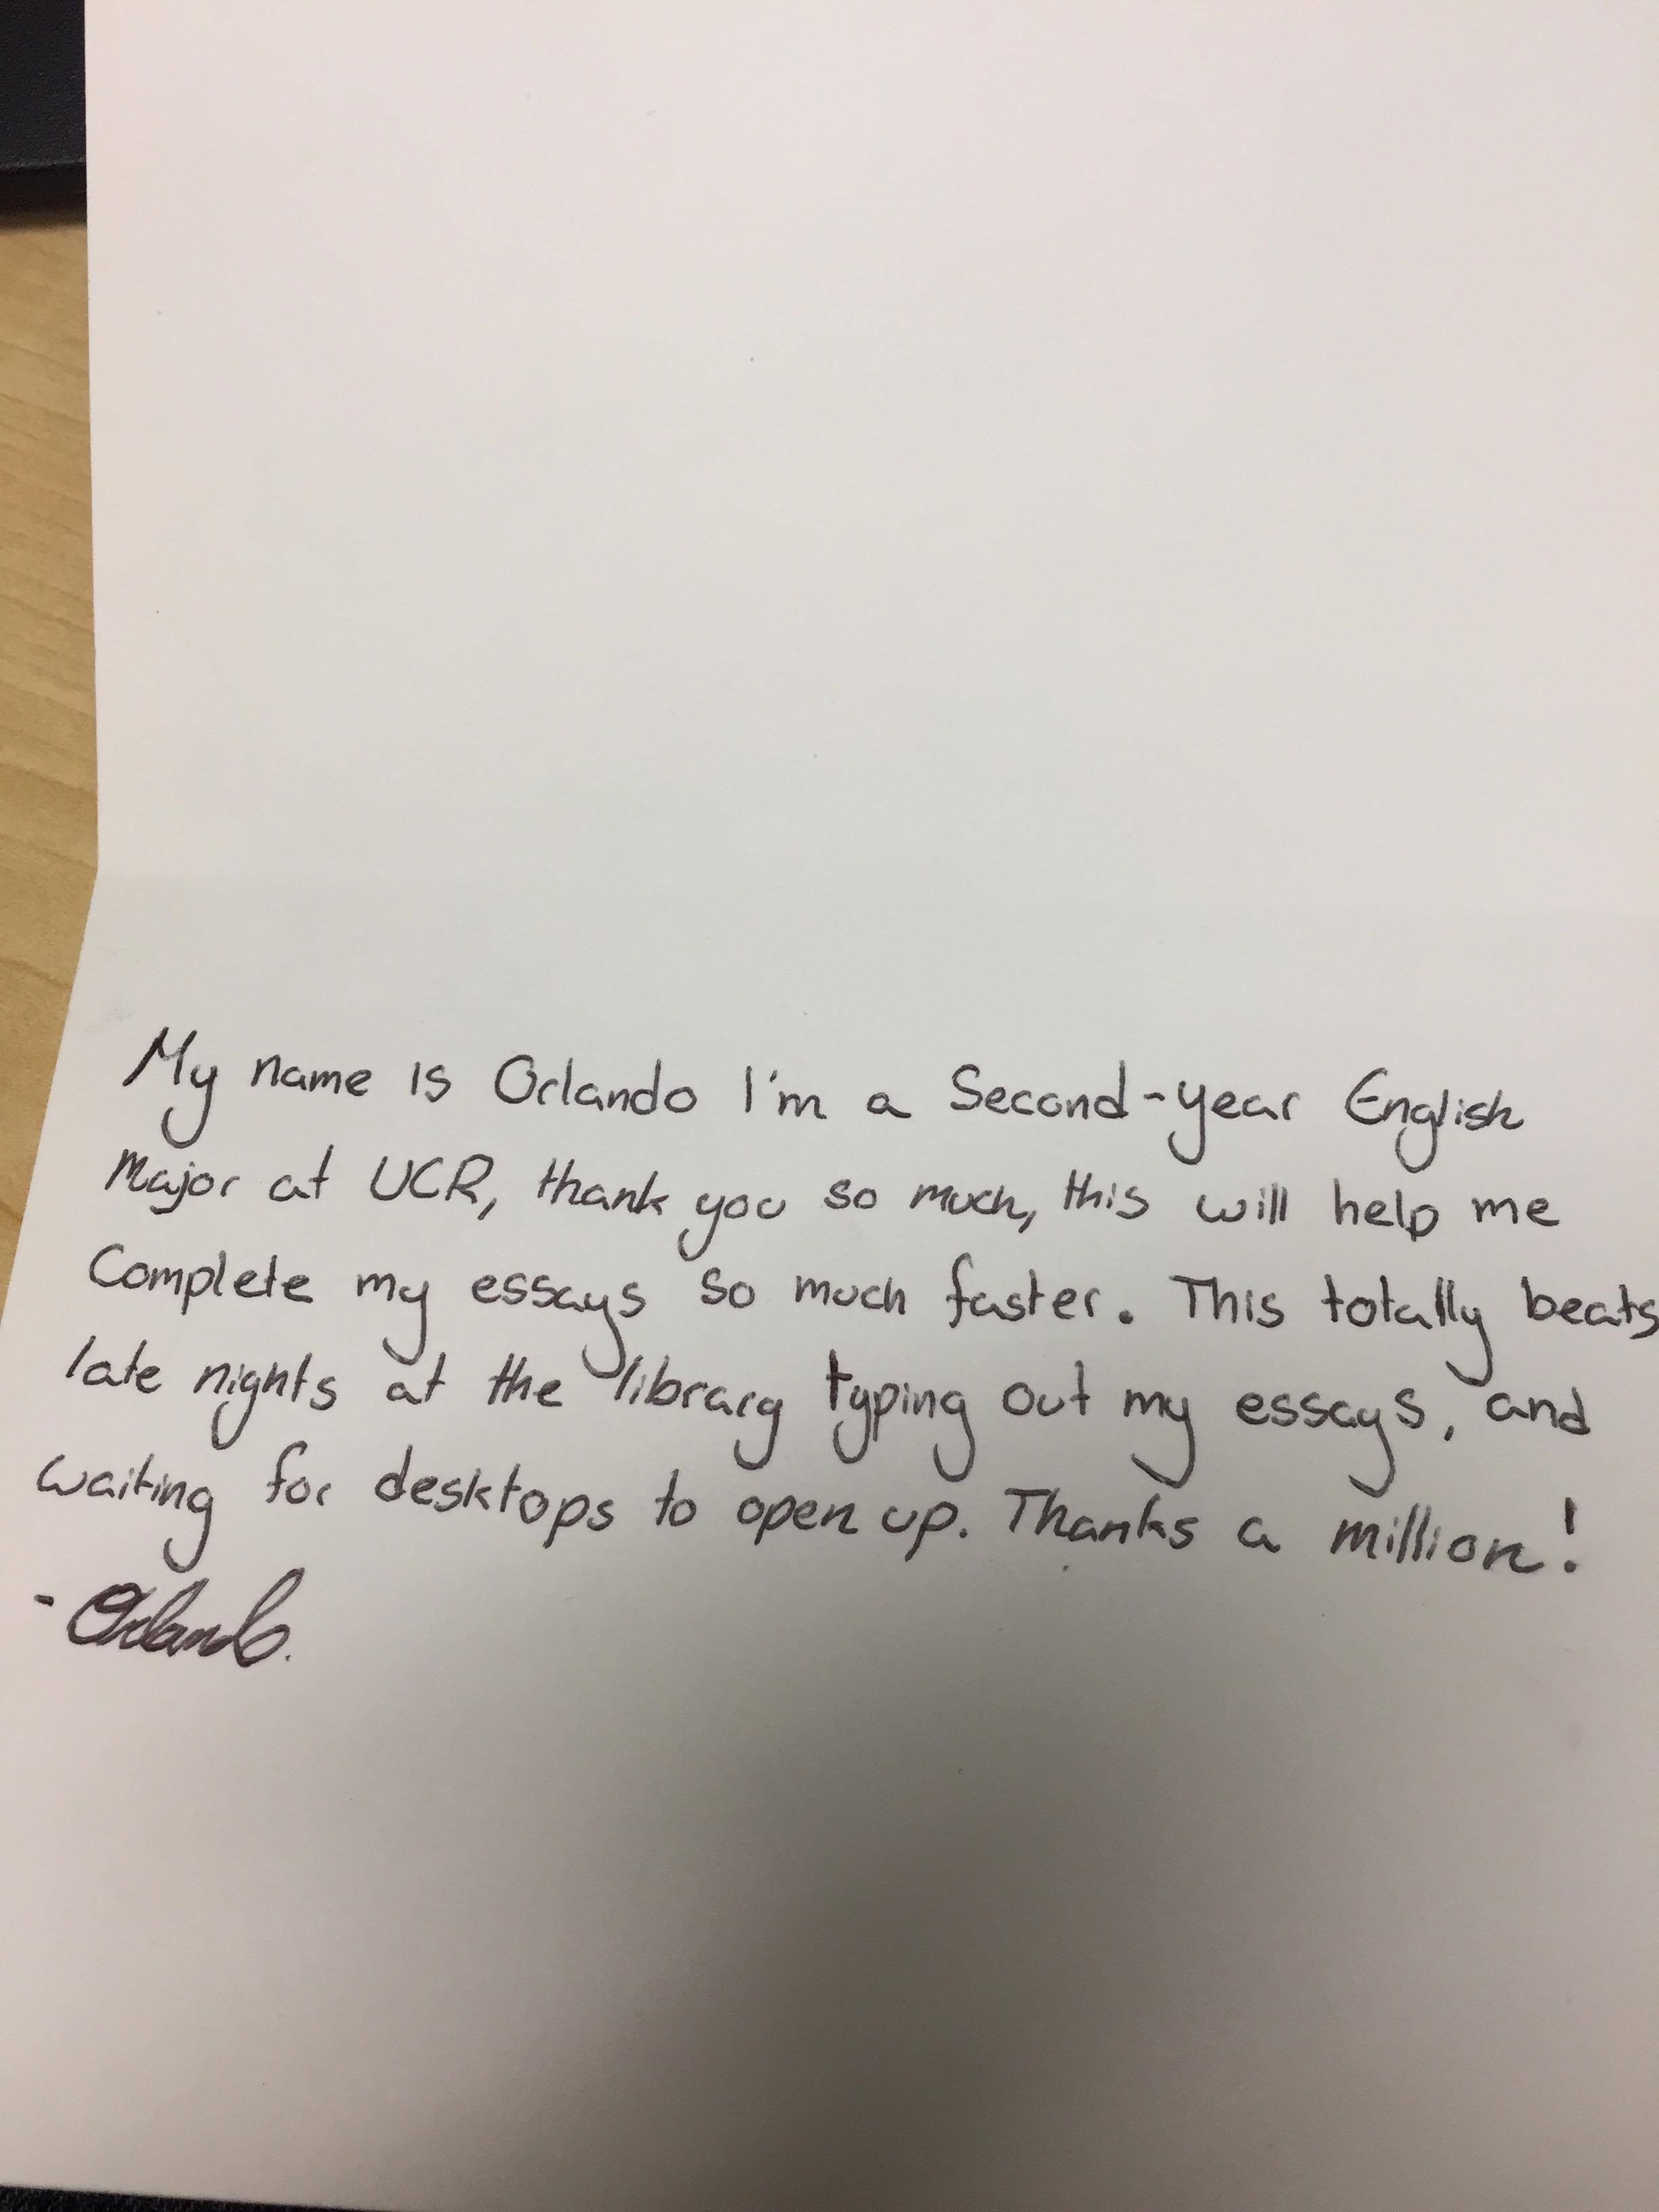 My name is Orlando I'm a Second-year English
Major at UCR, thank you so much, this will help me
Complete my essays so much faster. This totally beats
late nights at the library typing out my essays, and
waiting for desktops to open up. Thanks a million!
- Orlando.